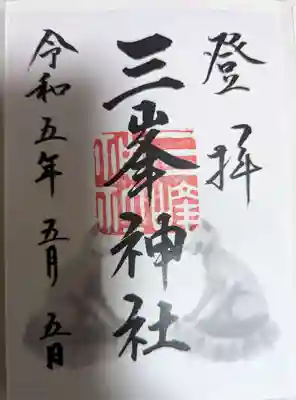 登拝
三峯神社
令和五年五月五日